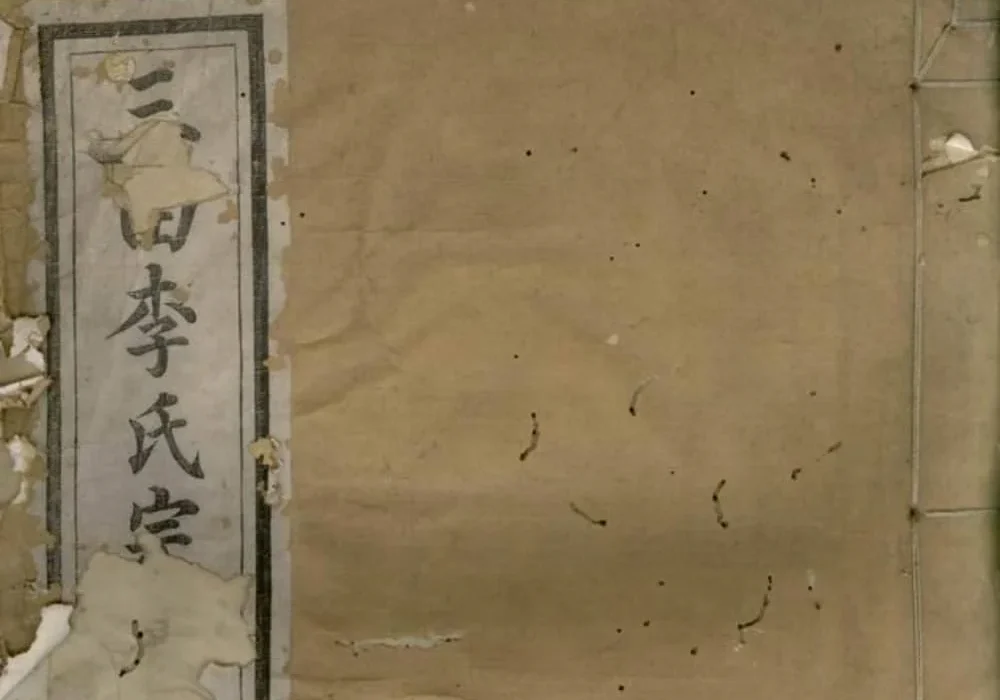 三田李氏宗